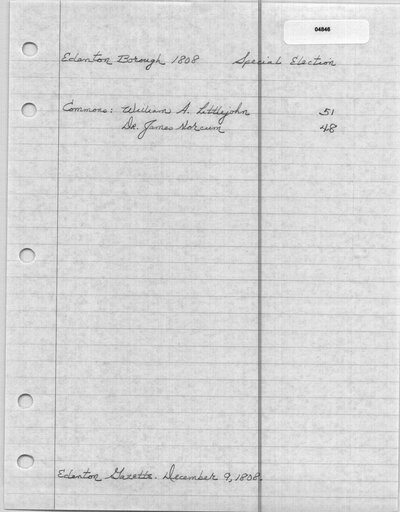 04846
Edenton Borough 1808 Special Election
Commons: William A. Littlejohn 51
Dr. James Norcum 48
Edenton Gazette. December 9, 1808.